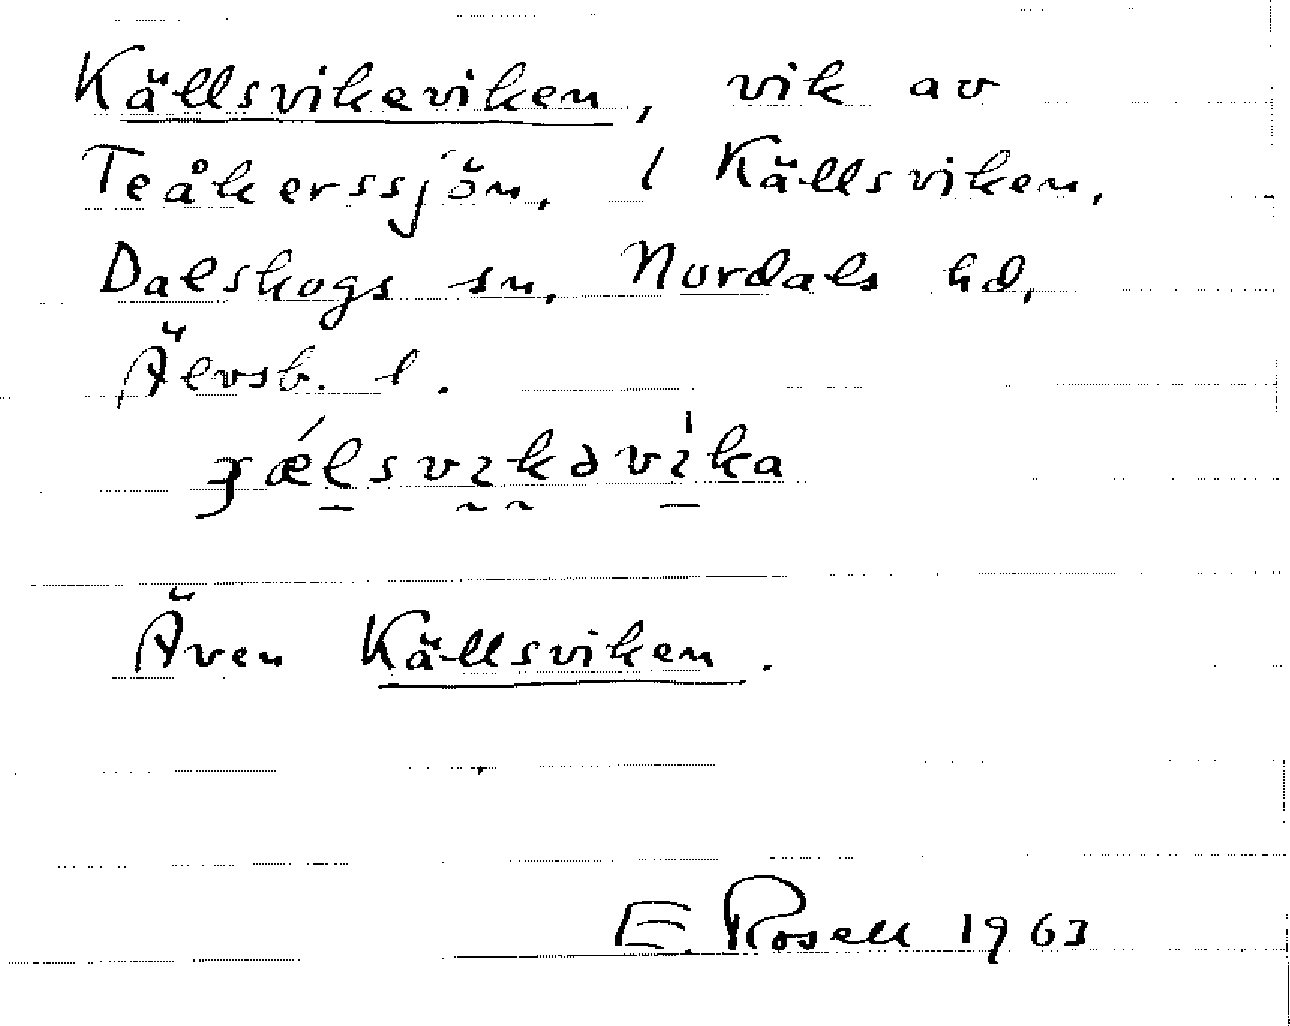 Källsvikeviken, vik av
Teåkerssjön, l Källsviken,
Dalskogs sn, Nordals hd,
Älvsb. l.
Även Källsviken.
E. Rosell 1963